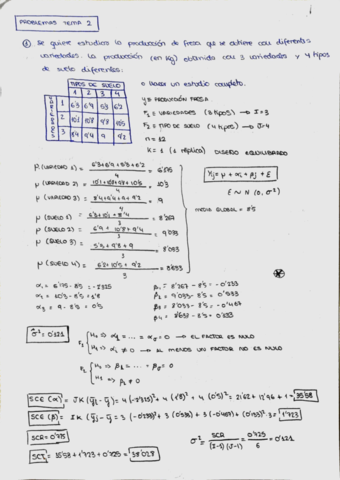 PROBLEMAS TEMA 2
① Se quiere estudiar la producción de fresa que se obtiene con diferentes
variedades. La producción (en Kg) obtenida con 3 variedades y 4 tipos
de suelo diferentes:
TIPOS DE SUELO
1 2 3 4
1 6'3 6'9 5'3 6'2
2 10'1 10'8 9'8 10'5
3 8'4 9'4 9 9'2
o Hacer un estudio completo.
y = PRODUCCIÓN FRESA
F₁ = VARIEDADES (3 tipos) → I = 3
F₂ = TIPO DE SUELO (4 tipos) → J = 4
n = 12
K = 1 (1 réplica) DISEÑO EQUILIBRADO
μ (VARIEDAD 1) = (6'3+6'9+5'3+6'2)/4 = 6'175
μ (VARIEDAD 2) = (10'1+10'8+9'8+10'5)/4 = 10'3
μ (VARIEDAD 3) = (8'4+9'4+9+9'2)/4 = 9
μ (SUELO 1) = (6'3+10'1+8'4)/3 = 8'267
μ (SUELO 2) = (6'9+10'8+9'4)/3 = 9'033
μ (SUELO 3) = (5'3+9'8+9)/3 = 8'033
μ (SUELO 4) = (6'2+10'5+9'2)/3 = 8'633
Yij = μ + αi + βj + E
E ~ N (0, σ²)
MEDIA GLOBAL = 8'5
α₁ = 6'175 - 8'5 = -2'325
α₂ = 10'3 - 8'5 = 1'8
α₃ = 9 - 8'5 = 0'5
β₁ = 8'267 - 8'5 = -0'233
β₂ = 9'033 - 8'5 = 0'533
β₃ = 8'033 - 8'5 = -0'467
β₄ = 8'633 - 8'5 = 0'133
σ̂² = 0'121
F₁ { H₀ → α₁ = ... = α₃ = 0 → EL FACTOR ES NULO
H₁ → αi ≠ 0 → AL MENOS UN FACTOR NO ES NULO
F₂ { H₀ → β₁ = ... = 0
H₁ → βj ≠ 0
SCE (α) = JK (ȳi - ȳ) = 4 (-2'325)² + 4 (1'8)² + 4 (0'5)² = 21'62 + 12'96 + 1 = 35'58
SCE (β) = IK (ȳj - ȳ) = 3 (-0'233)² + 3 (0'533)² + 3 (-0'467)² + (0'133)²·3 = 1'723
SCR = 0'725
σ² = SCR/((I-1)(J-1)) = 0'725/6 = 0'121
SCT = 35'58 + 1'723 + 0'725 = 38'028